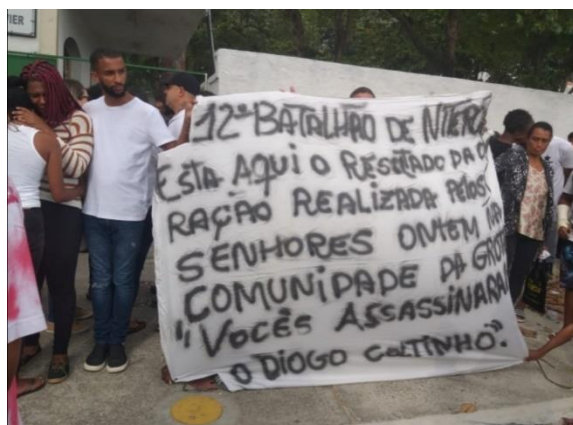 IER
12º BATALHÃO DE NITERO
ESTA AQUI O RESUTADO DA O
RAÇÃO REALIZADA PELOS
SENHORES ONTEM NA
COMUNIDADE DA GROT
"VOCÊS ASSASSINARA
O DIOGO COLTINHO".